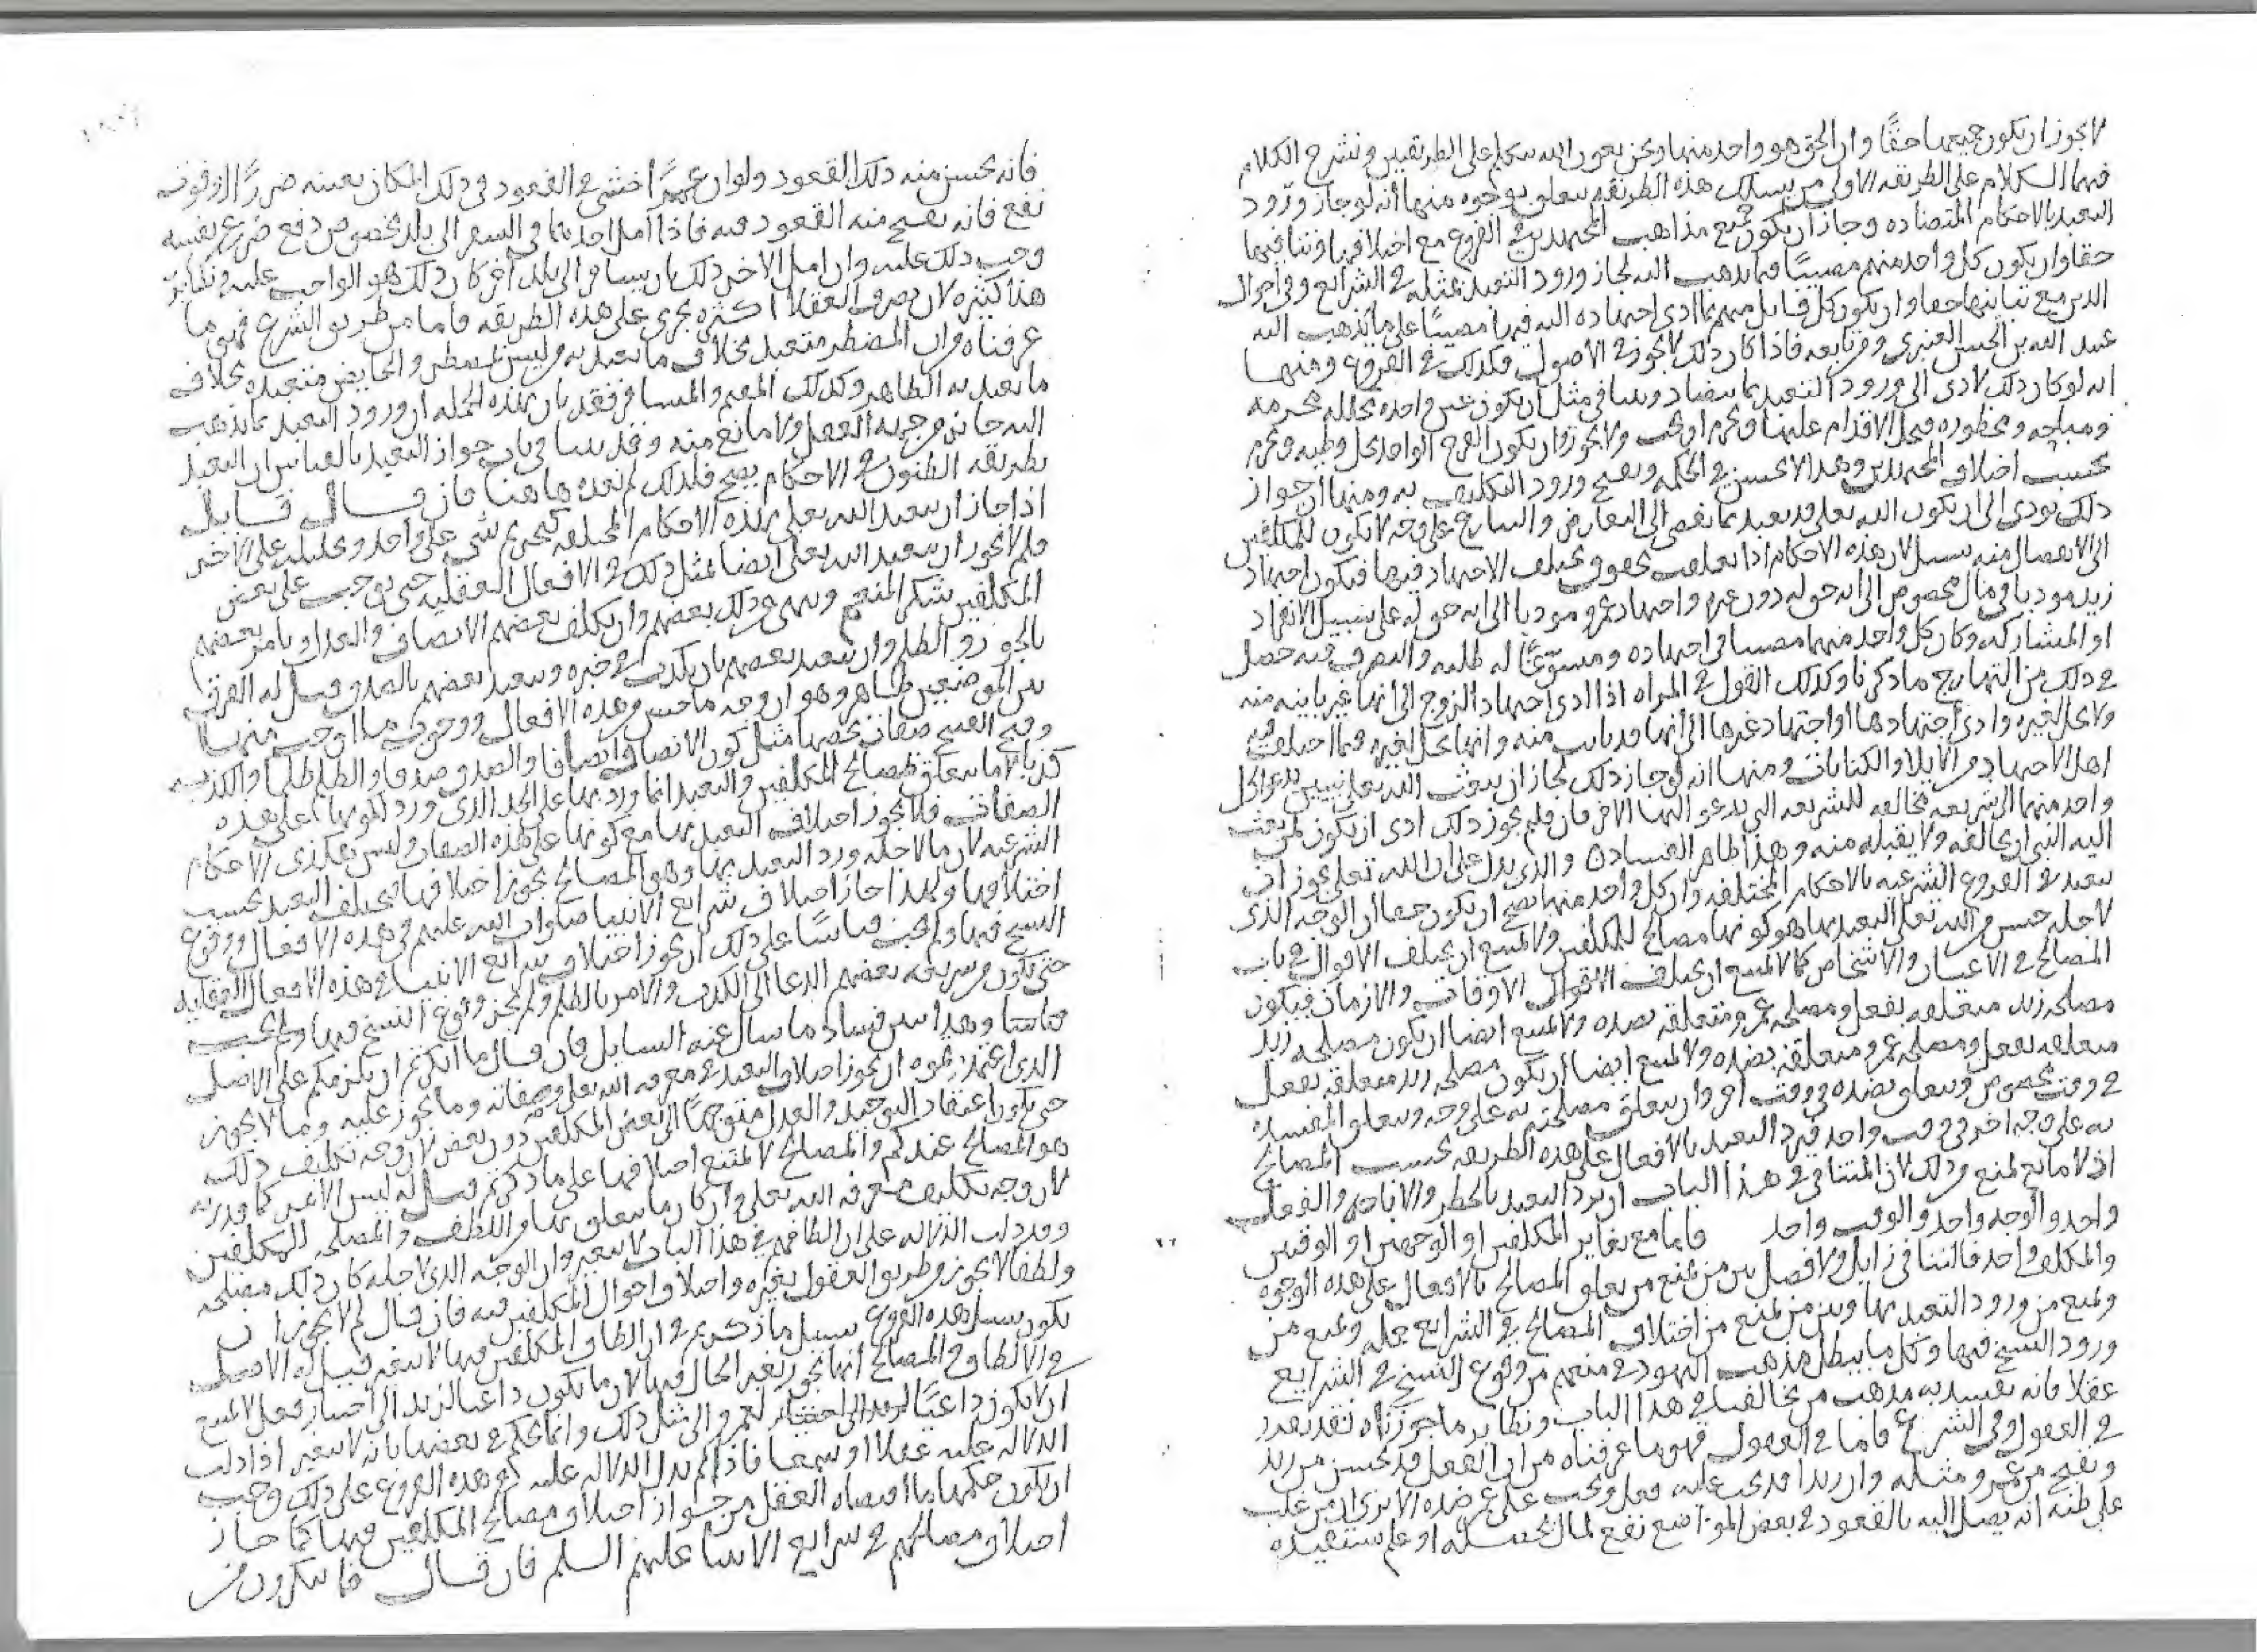 لا يجوز ان يكون جميعها حقًا وان الحق هو واحد منها ونحن بعون الله نتكلم على الطريقين ونشرح الكلام
فيهما الكلام على الطريقه الاولى من يسلك هذه الطريقه يتعلق بوجوه منها أنه لو جاز ورود
التعبد بالاحكام المتضاده وجاز أن يكون جميع مذاهب المجتهدين في الفروع مع اختلافها وتنافيها
حقا وان يكون كل واحد منهم مصيبًا فيما يذهب اليه لجاز ورود التعبد بمثله في الشرايع وفي احوال
الدين مع تباينها حقا وان يكون كل قايل منهم بما ادى اجتهاده اليه فيها مصيبًا على ما يذهب اليه
عبيد الله بن الحسن العنبري ومن تابعه فاذا كان ذلك لا يجوز في الاصول فكذلك في الفروع ومنها
انه لو كان ذلك لادى الى ورود التعبد بما يتضاد ويتنافى مثل أن يكون عين واحده محلله محرمه
ومباحه ومحظوره فيحل الاقدام عليها ويحرم او يجب ولا يجوز وان يكون الفرج الواحد يحل وطيه ويحرم
بحسب اختلاف المجتهدين وهذا لا يحسن في الحكمه ويقبح ورود التكليف به ومنها أن جواز
ذلك يودى الى ان يكون الله تعلى قد تعبد بما يفضى الى التعارض والتمانع على وجه لا يكون للمكلفين
الى الانفصال منه سبيل لان هذه الاحكام اذا تعلقت بحقوق يختلف الاجتهاد فيها فيكون اجتهاد
زيد موديا في مال مخصوص الى انه حق له دون عمرو واجتهاد عمرو موديا الى انه حق له على سبيل الانفراد
او المشاركه وكان كل واحد منهما مصيبا في اجتهاده ومسوّغًا له طلبه والتصرف فيه حصل
في ذلك من التهارج ما ذكرنا وكذلك القول في المراه اذا ادى اجتهاد الزوج الى انها غير باينه منه
ولا تحل لغيره وادى اجتهادها او اجتهاد غيرها الى أنها قد بانت منه وانها تحل لغيره فيما اختلف فيه
اهل الاجتهاد من الايلا والكنايات ومنها انه لو جاز ذلك لجاز ان يبعث الله تعلى نبيين يدعوا كل
واحد منهما الى شريعه مخالفه للشريعه التى يدعو اليها الاخر فان قلتم يجوز ذلك ادى ان يكون لمن يبعث
اليه النبى ان يخالفه ولا يقبله منه وهذا ظاهر الفساد والذى يدل على ان الله تعلى يجوز ان
يتعبد في الفروع الشرعيه بالاحكام المختلفه وان كل واحد منها يصح ان يكون حقا ان الوجه الذى
لاجله حسن من الله تعلى التعبد بها هو كونها مصالح للمكلفين ولا يمتنع ان يختلف الاحوال في باب
المصالح في الاعيان والاشخاص كما لا يمتنع ان يختلف الاحوال الاوقات والازمان فيكون
مصلحه زيد متعلقه بفعل ومصلحه عمرو متعلقه بضده ولا يمتنع ايضا ان يكون مصلحه زيد
متعلقه بفعل ومصلحه عمرو متعلقه بضده ولا يمتنع ايضا ان يكون مصلحه زيد متعلقه بفعل
في وقت مخصوص وتتعلق بضده في وقت اخر وان يتعلق مصلحته به على وجه وتتعلق المفسده
به على وجه اخر في وقت واحد فيرد التعبد بالافعال على هذه الطريقه بحسب المصالح
اذ لا مانع يمنع من ذلك لان المتنافى في هذا الباب ان يرد التعبد بالحظر والاباحه والفعل
واحد والوجه واحد والوقت واحد فاما مع تغاير المكلفين او الوجهين او الوقتين
والمكلف واحد فالتنافى زايل ولا فصل بين من يمنع من تعلق المصالح بالافعال على هذه الوجوه
ويمنع من ورود التعبد بها وبين من يمنع من اختلاف المصالح في الشرايع جمله ويمنع من
ورود النسخ فيها وكل ما يبطل مذهب اليهود في منعهم من وقوع النسخ في الشرايع
عقلا فانه يفسد به مذهب من يخالفنا في هذا الباب ونظاير ما جوزناه فقد يقرر
في العقول وفي الشرع فاما في العقول فهو ما عرفناه من ان الفعل قد يحسن من زيد
ويقبح من عمرو مثله وان زيدا قد يجب عليه فعل ويجب على عمرو ضده الا ترى ان من غلب
على ظنه انه يصل اليه بالقعود في بعض المواضع نفع لمال يحصله او علم يستفيده
فانه يحسن منه ذلك القعود ولو ان عمرًا خشى في القعود في ذلك المكان بعينه ضررًا او فوت
نفع فانه يقبح منه القعود فيه فاذا امل احدهما في السفر الى بلد مخصوص دفع ضرر عن نفسه
وجب ذلك عليه وان امل الاخر ذلك بان يسافر الى بلد آخر كان ذلك هو الواجب عليه ونظاير
هذا كثيره لان تصرف العقلا اكثره يجرى على هذه الطريقه فاما من طريق الشرع فهو ما
عرفناه من ان المضطر متعبد بخلاف ما تعبد به من ليس بمضطر والحايض متعبده بخلاف
ما تعبد به الطاهر وكذلك المقيم والمسافر فقد بان بهذه الجمله ان ورود التعبد بما يذهب
اليه جايز من جهه العقل ولا مانع منه وقد بينا في باب جواز التعبد بالقياس ان التعبد
بطريقه الظنون في الاحكام يصح فلذلك لم نعده هاهنا فان قال قايل
اذا جاز ان يتعبد الله تعلى بهذه الاحكام المختلفه كتحريم شى على واحد وتحليله على الاخر
فلم لا يجوز ان يتعبد الله تعلى ايضا بمثل ذلك في الافعال العقليه حتى يوجب على بعض
المكلفين شكر المنعم وينهى عن ذلك بعضهم وان يكلف بعضهم الانصاف والعدل ويامر بعضهم
بالجور والظلم وان يتعبد بعضهم بان يكذب في خبره ويتعبد بعضهم بالصدق قيل له الفرق
بين الموضعين ظاهر وهو ان وجه ما حسن من هذه الافعال ووجوب ما اوجب منها
وقبح القبيح صفات تخصها مثل كون الانصاف انصافا والصدق صدقا والظلم ظلما والكذب
كذبا لا ما يتعلق بمصالح المكلفين والتعبد انما ورد بها على الحد الذى ورد لكونها على هذه
الصفات فلا يجوز اختلاف التعبد بها مع كونها على هذه الصفات وليس هكذى الاحكام
الشرعيه لان ما لاجله ورد التعبد بها وهو المصالح يجوز اختلافها فيختلف التعبد بحسب
اختلافها ولهذا جاز اختلاف شرايع الانبيا صلوات الله عليهم في هذه الافعال ووقوع
النسخ فيها ولم يجب قياسًا على ذلك ان يجوز اختلاف شرايع الانبيا في هذه الافعال العقليه
حتى يكون من شريعه بعضهم الدعا الى الكذب والامر بالظلم ولم يجز وقوع النسخ فيها ولم يجب
قياسا وهذا يبين فساد ما سال عنه السايل فان قال ما انكرتم ان يلزمكم على الاصل
الذى اعتمدتموه ان يجوز اختلاف التعبد في معرفه الله تعلى وصفاته وما يجوز عليه وما لا يجوز
حتى يكون اعتقاد التوحيد والعدل متوجهًا الى بعض المكلفين دون بعض لان وجه تكليف ذلك
هو المصالح عندكم والمصالح لا يمتنع اختلافها على ما ذكرتم قيل له ليس الامر كما قدرته
لان وجه تكليف معرفه الله تعلى وان كان ما يتعلق بها من اللطف والمصلحه للمكلفين
وقد دلت الدلاله على ان الطافهم في هذا الباب لا يتغير وان الوجه الذى لاجله كان ذلك مصلحه
ولطفا لا يجوز من طريق العقول تغيره واختلاف احوال المكلفين فيه فان قال لم لا يجوز ان
يكون سبيل هذه الفروع سبيل ما ذكرتم في ان الطاف المكلفين فيها لا يتغير قيل له الاصل
في الالطاف والمصالح انها تجوز تغير الحال فيها لان ما يكون داعيا لزيد الى اختيار فعل لا يمتنع
ان لا يكون داعيًا لعمرو الى مثل ذلك وانما يحكم في بعضها بانه لا يتغير اذا دلت
الدلاله عليه عقلا او سمعا فاذا لم يدل الدلاله عليه في هذه الفروع على ذلك وجب
ان يكون حكمها ما اقتضاه العقل من جواز اختلاف مصالح المكلفين فيها كما جاز
اختلاف مصالحهم في شرايع الانبيا عليهم السلم فان قال فما تنكرون من